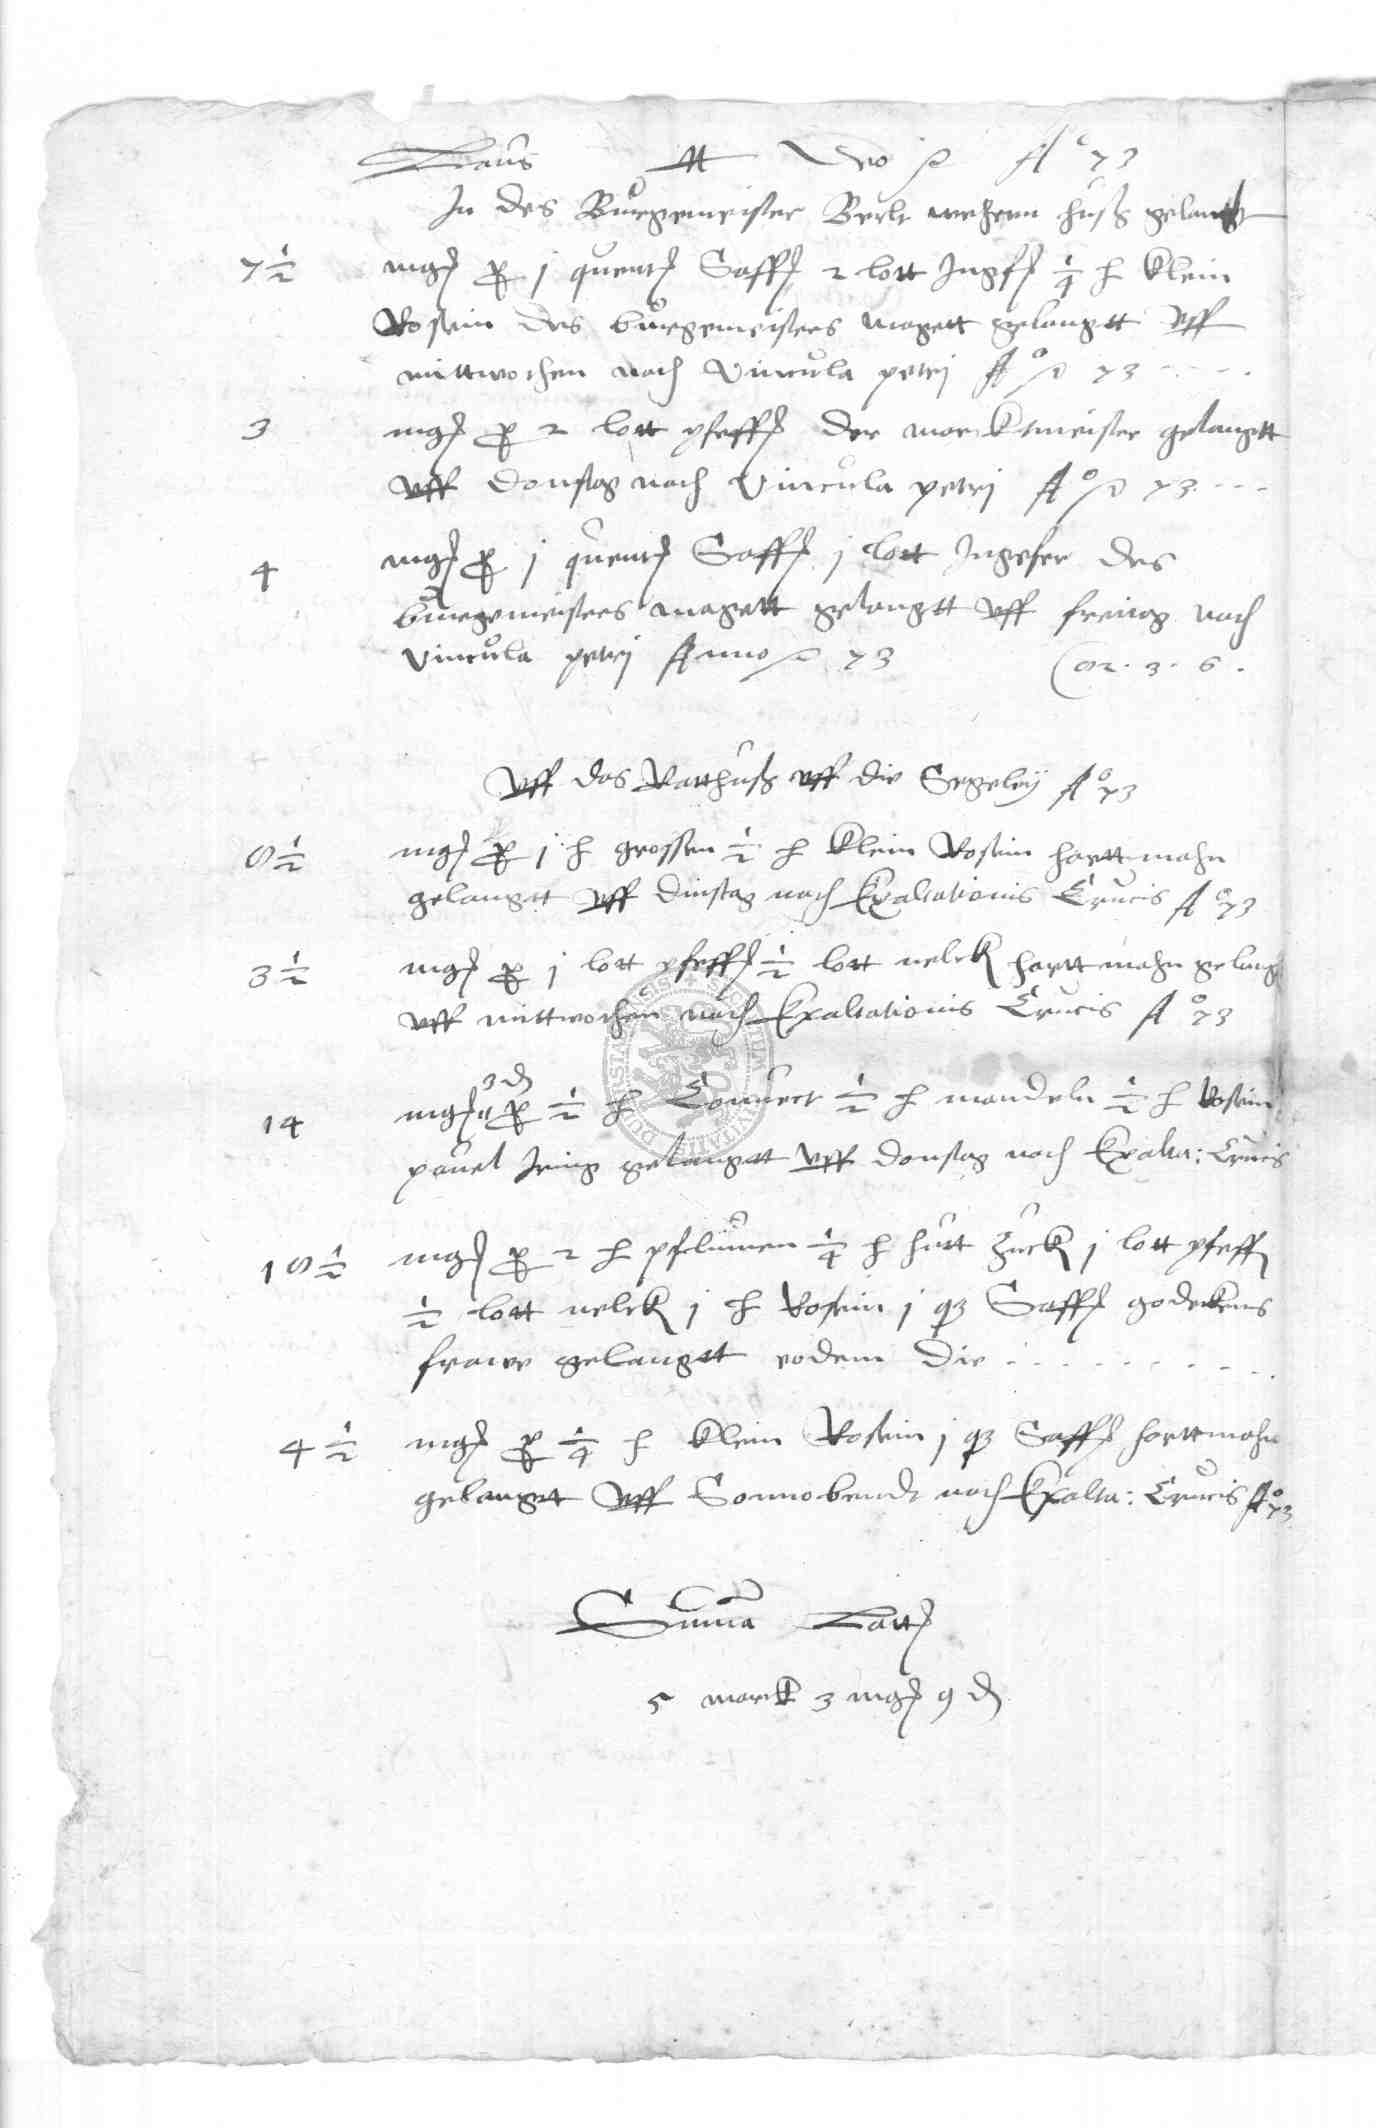 Laus tt Deo A° 73
In des Burgemeister Berlt wehren huß gelangtt
7 1/2 mg p j quent Saff 2 lott Ingf 1/4 lb klein
Rosein des burgemeisters magett gelangtt vff
mittwochen nach Vincula petrj A° 73
3 mg p 2 lott pfeff der marcktmeister gelangtt
vff Donstag nach Vincula petrj A° 73
4 mg p j quent Saff j lott Ingefer des
burgemeisters magett gelangtt vff freitag nach
Vincula petrj Anno 73
Vff das Ratthuß vff die Segeleÿ A° 73
8 1/2 mg p j lb grossen 1/2 lb klein Rosein harttmahn
gelangtt vff Dinstag nach Exaltationis Crucis A° 73
3 1/2 mg p j lott pfeff 1/2 lott nelck harttmahn gelang
vff mittwochen nach Exaltationis Crucis A° 73
3 d
14 mg p 1/2 lb Conuect 1/2 lb mandeln 1/2 lb Rosein
pauel gelangtt vff Donstag nach Exalta: Crucis
18 1/2 mg p 2 lb pfluimen 1/4 lb hutt Zuck j lott pfeff
1/2 lott nelck j lb Rosein j q Saff godekens
frawe gelangtt eodem Die
4 1/2 mg p 1/4 lb klein Rosein j q Saff harttmahn
gelangtt vff Sonnobendt nach Exalta: Crucis A° 73
Suma Latt
5 marck 3 mg 9 d